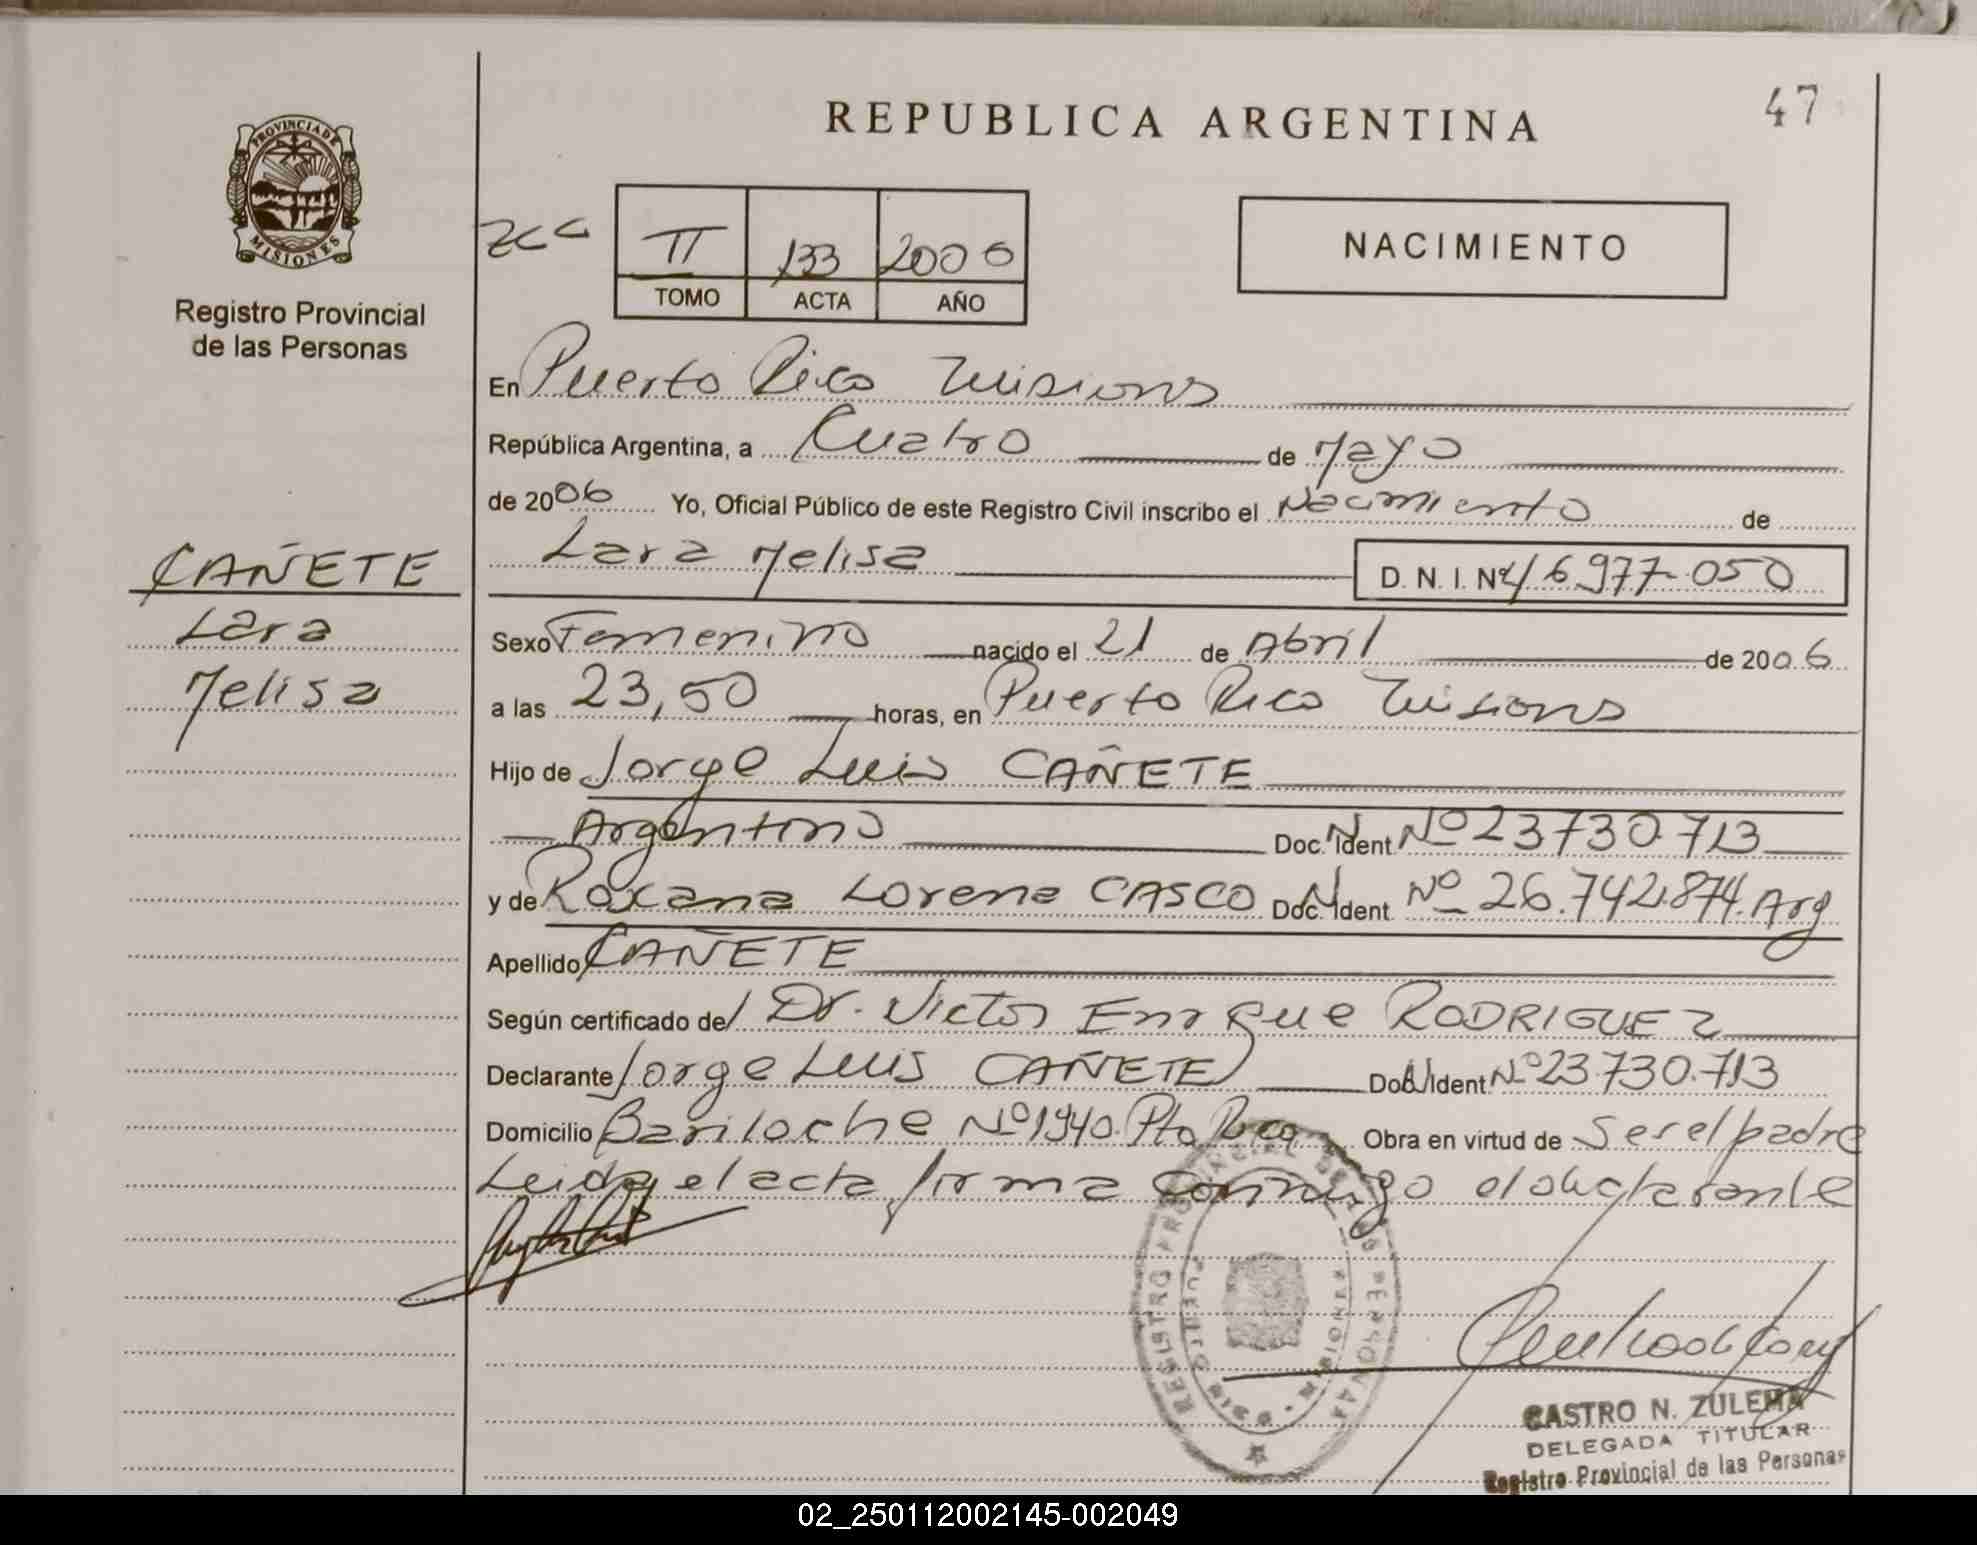 47
REPUBLICA ARGENTINA
PROVINCIA DE
MISIONES
Registro Provincial
de las Personas
II 133 2006
TOMO ACTA AÑO
NACIMIENTO
En Puerto Rico Misiones
República Argentina, a Cuatro de Mayo
de 2006 Yo, Oficial Público de este Registro Civil inscribo el Nacimiento de
Lara Melisa D. N. I. Nº 46977.050
CAÑETE
Lara
Melisa
Sexo Femenino nacido el 21 de Abril de 2006
a las 23,50 horas, en Puerto Rico Misiones
Hijo de Jorge Luis CAÑETE
Argentino Doc. Ident. Nº 23730713
y de Roxana Lorena CASCO Doc. Ident. Nº 26.742.874. Arg
Apellido CAÑETE
Según certificado del Dr. Victor Enrique RODRIGUEZ
Declarante Jorge Luis CAÑETE Doc. Ident. Nº 23.730.713
Domicilio Bariloche Nº 1940. Pto Rico Obra en virtud de Ser el padre
Leida el acta firma conmigo el declarante
REGISTRO PROVINCIAL DE LAS PERSONAS
PUERTO RICO MISIONES
CASTRO N. ZULEMA
DELEGADA TITULAR
Registro Provincial de las Personas
02_250112002145-002049